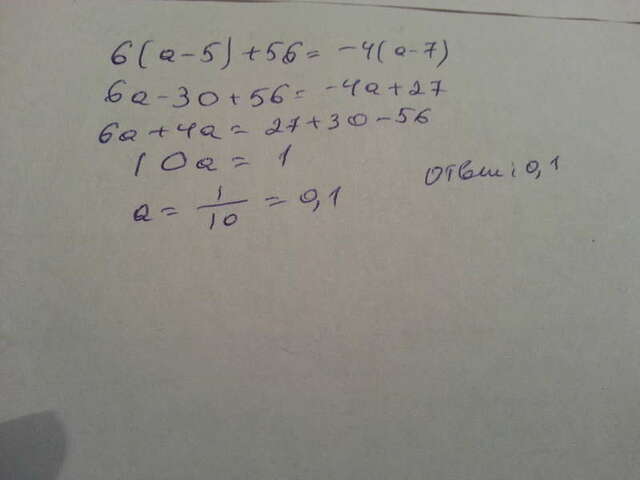 6(a-5)+56=-4(a-7)
6a-30+56=-4a+27
6a+4a=27+30-56
10a=1
a=1/10=0,1
Ответ: 0,1